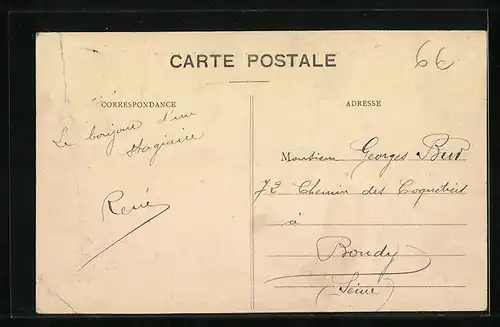 CARTE POSTALE
6€
CORRESPONDANCE
Le bonjour d'un
stagiaire
René
ADRESSE
Monsieur Georges
72 Chemin des
à
Bondy
(Seine)